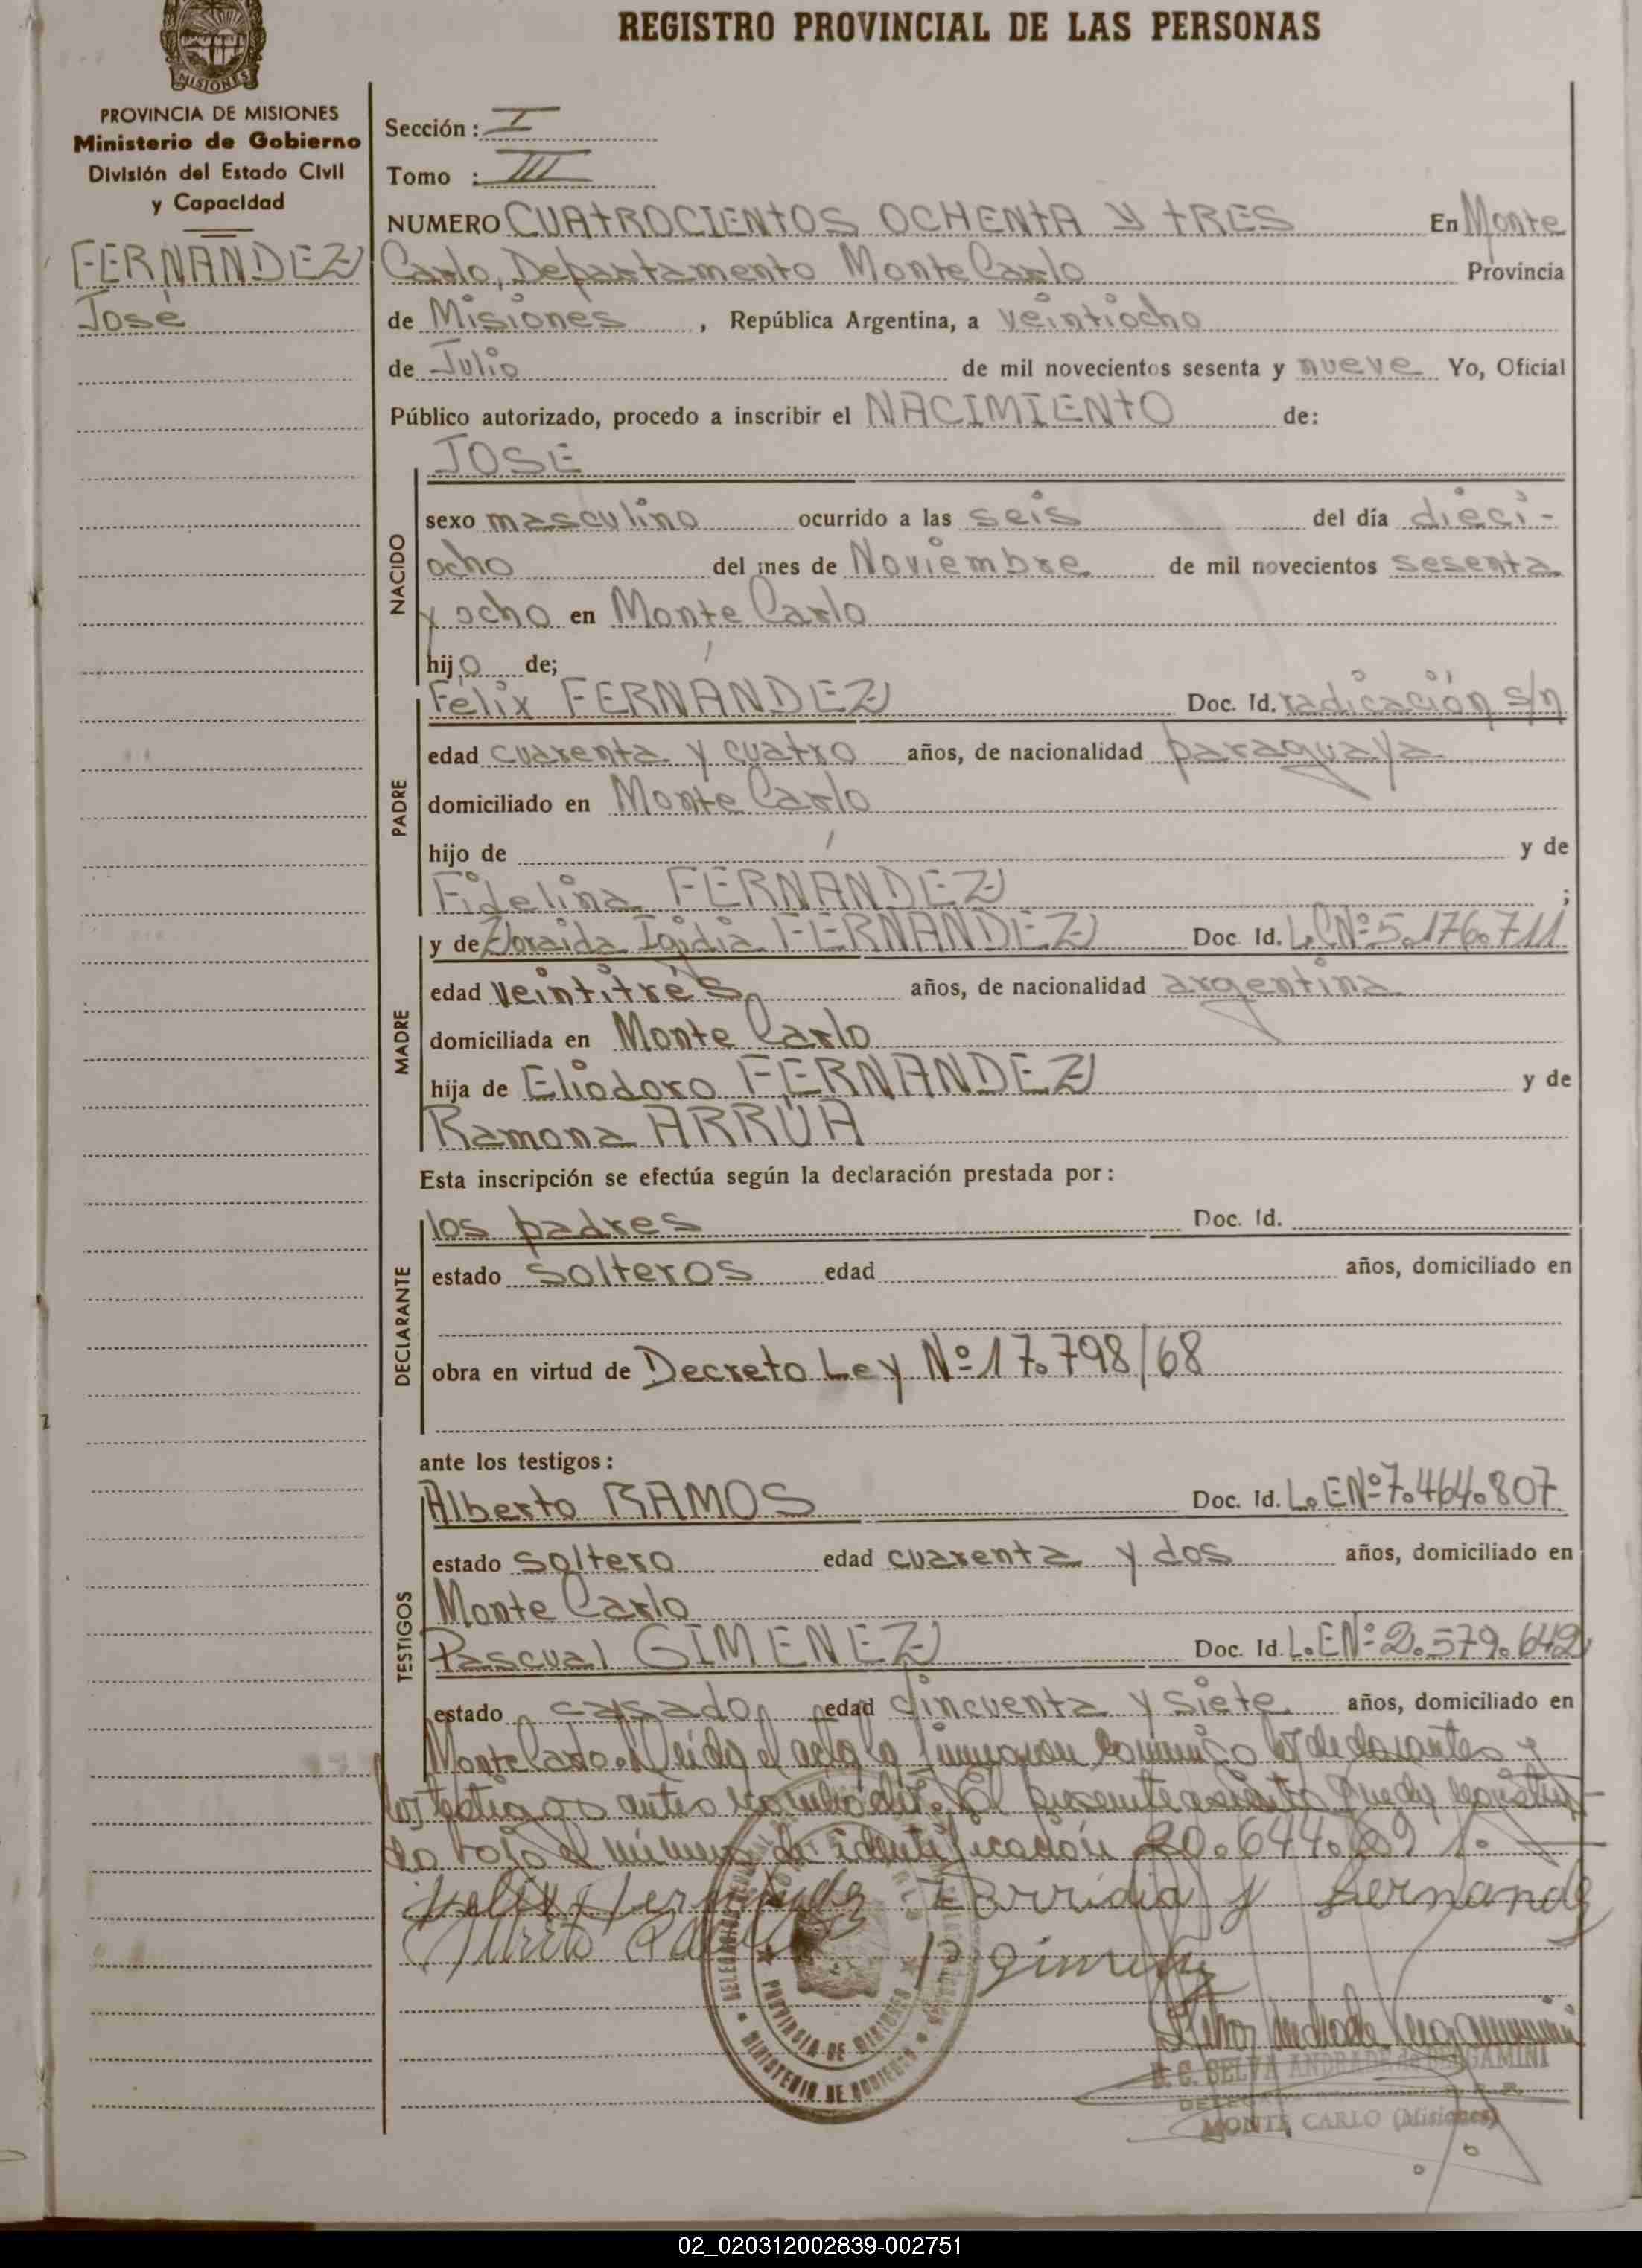 REGISTRO PROVINCIAL DE LAS PERSONAS
MISIONES
PROVINCIA DE MISIONES
Ministerio de Gobierno
División del Estado Civil
y Capacidad
FERNÁNDEZ
José
Sección: I
Tomo : III
NUMERO CUATROCIENTOS OCHENTA Y TRES En Monte
Carlo, Departamento Monte Carlo Provincia
de Misiones, República Argentina, a veintiocho
de Julio de mil novecientos sesenta y nueve Yo, Oficial
Público autorizado, procedo a inscribir el NACIMIENTO de:
JOSE
NACIDO
sexo masculino ocurrido a las seis del día dieci-
ocho del mes de Noviembre de mil novecientos sesenta
y ocho en Monte Carlo
hijo de;
PADRE
Félix FERNÁNDEZ Doc. Id. radicación s/n
edad cuarenta y cuatro años, de nacionalidad paraguaya
domiciliado en Monte Carlo
hijo de y de
Fidelina FERNÁNDEZ ;
MADRE
y de Igidia FERNANDEZ Doc. Id. L.C.Nº 5.176.711
edad veintitrés años, de nacionalidad argentina
domiciliada en Monte Carlo
hija de Eliodoro FERNANDEZ y de
Ramona ARRÚA
Esta inscripción se efectúa según la declaración prestada por:
DECLARANTE
los padres Doc. Id.
estado solteros edad años, domiciliado en
obra en virtud de Decreto Ley Nº 17.798/68
ante los testigos:
TESTIGOS
Alberto RAMOS Doc. Id. L.E.Nº 7.464.807
estado soltero edad cuarenta y dos años, domiciliado en
Monte Carlo
Pascual GIMENEZ Doc. Id. L.E.Nº 2.579.642
estado casado edad cincuenta y siete años, domiciliado en
Monte Carlo. Leída el acta la firmaron conmigo los declarantes y
los testigos antes El presente asiento queda
bajo el número de identificación 20.644.
Felix Fernandez y Fernandez
Alberto Ramos P Gimenez
PROVINCIA DE MISIONES
MINISTERIO DE GOBIERNO
SELVA ANDRADE de BERGAMINI
MONTE CARLO (Misiones)
02_020312002839-002751